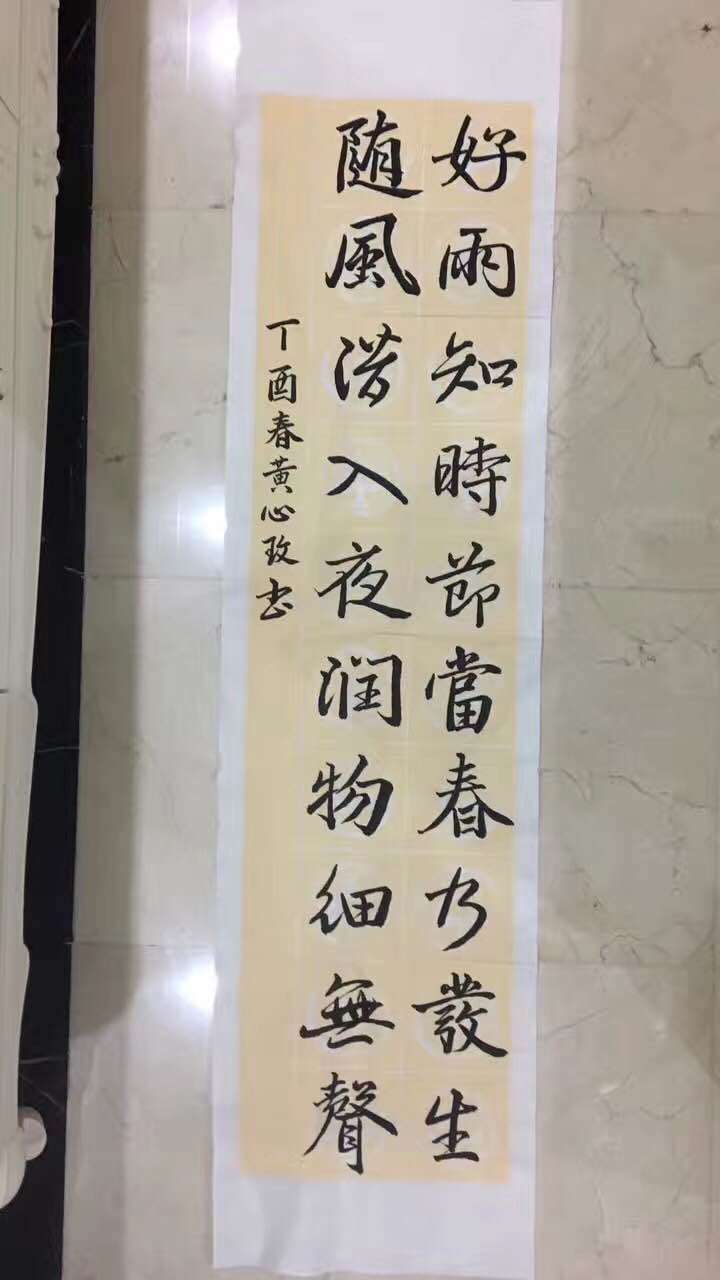 好雨知時節當春乃發生
随風潜入夜润物细無聲
丁酉春黄心玫书